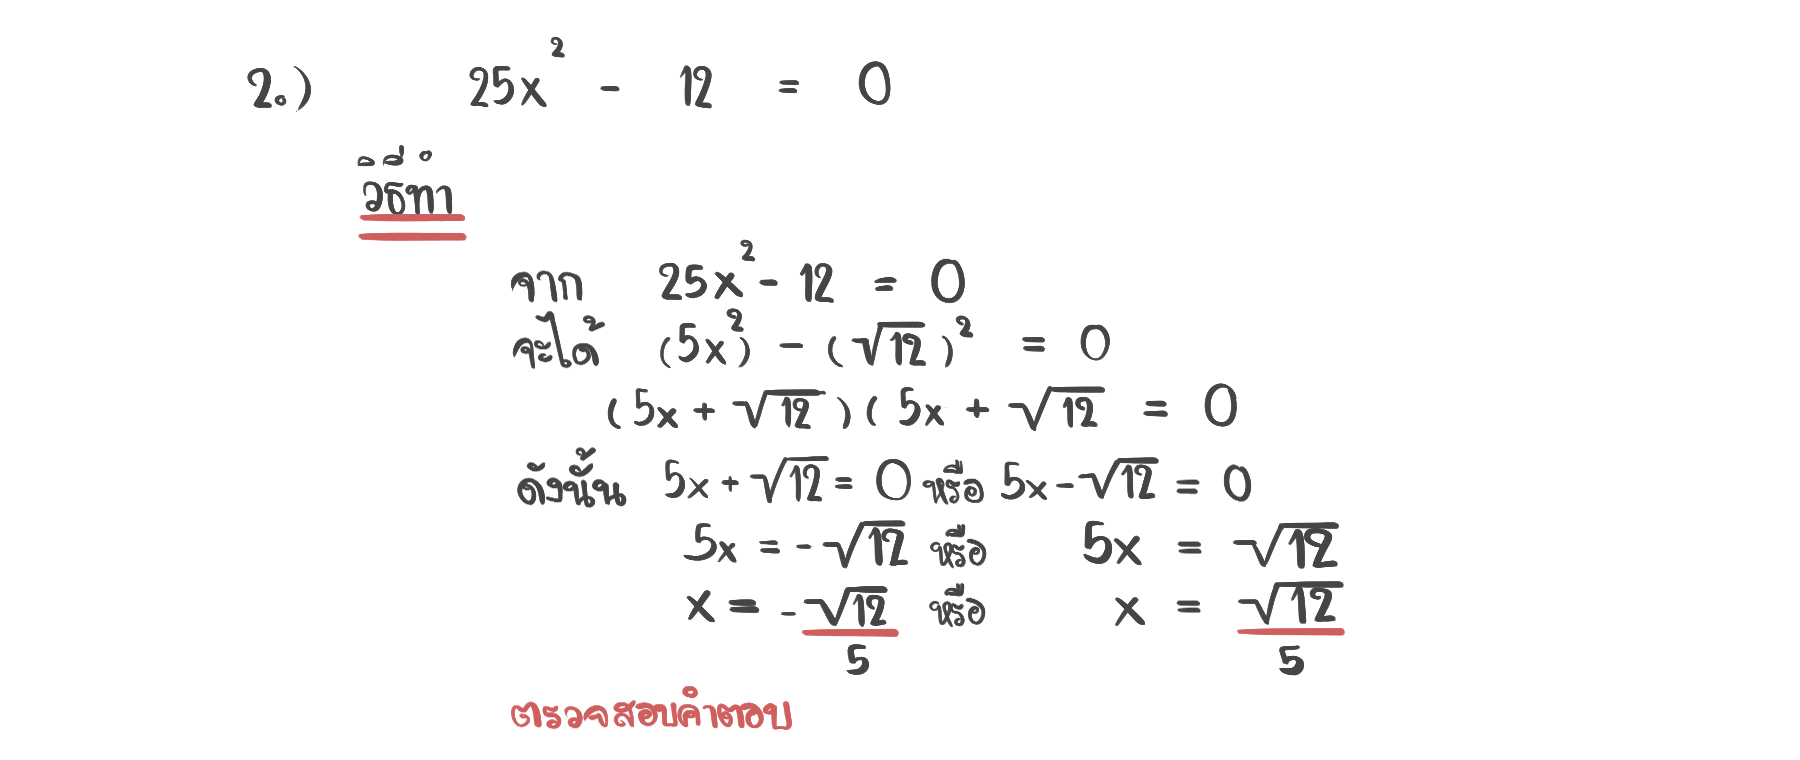 2.) 25x² - 12 = 0
วิธีทำ
จาก 25x² - 12 = 0
จะได้ (5x²) - (√12)² = 0
(5x + √12)(5x + √12 = 0
ดังนั้น 5x + √12 = 0 หรือ 5x - √12 = 0
5x = -√12 หรือ 5x = √12
x = -√12/5 หรือ x = √12/5
ตรวจสอบคำตอบ